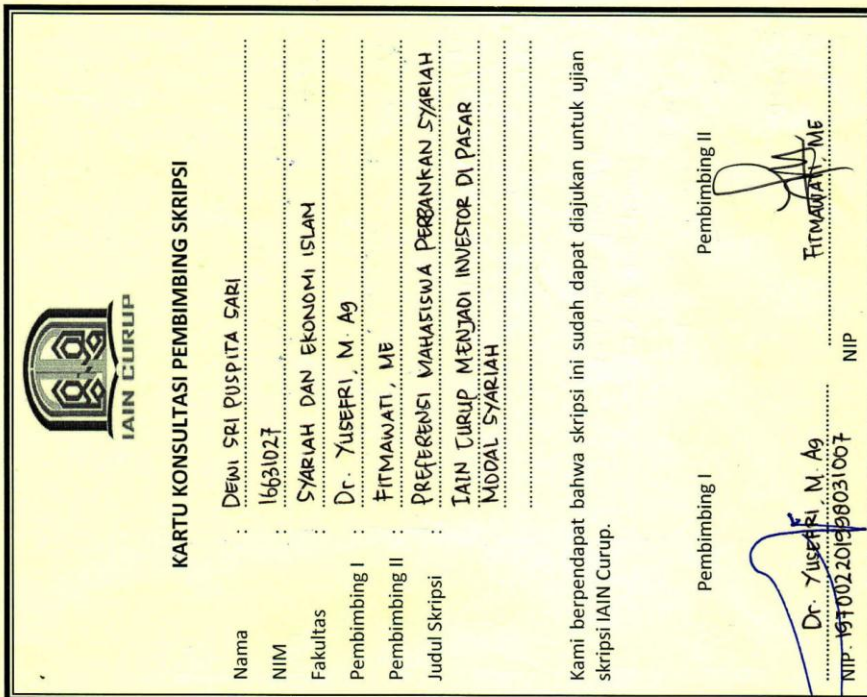 IAIN CURUP
KARTU KONSULTASI PEMBIMBING SKRIPSI
Nama : DEWI SRI PUSPITA SARI
NIM : 16631027
Fakultas : SYARIAH DAN EKONOMI ISLAM
Pembimbing I : Dr. YUSEFRI, M. Ag
Pembimbing II : FITMAWATI, ME
Judul Skripsi : PREFERENSI MAHASISWA PERBANKAN SYARIAH
IAIN CURUP MENJADI INVESTOR DI PASAR
MODAL SYARIAH
Kami berpendapat bahwa skripsi ini sudah dapat diajukan untuk ujian
skripsi IAIN Curup.
Pembimbing I
Dr. YUSEFRI, M. Ag
NIP. 197002201998031007
Pembimbing II
FITMAWATI, ME
NIP